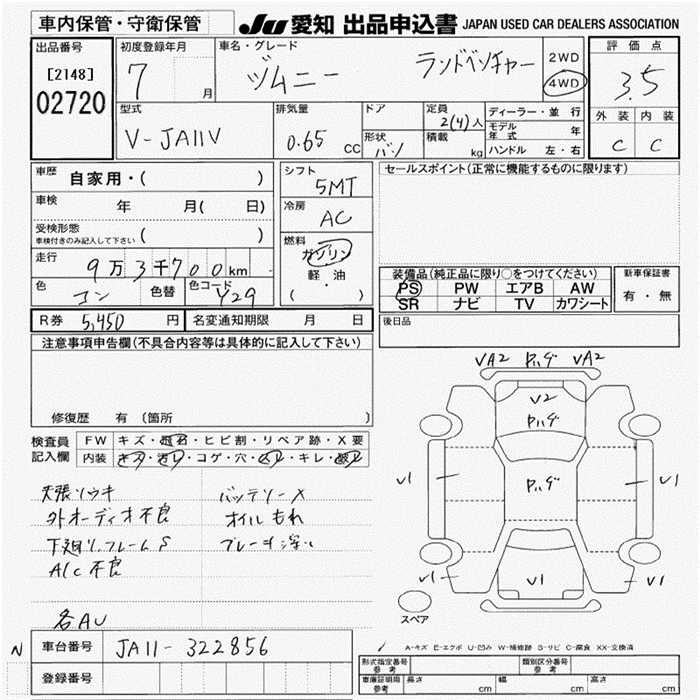 車内保管・守衛保管
JU 愛知 出品申込書 JAPAN USED CAR DEALERS ASSOCIATION
出品番号 [2148] 02720
初度登録年月 7 月
車名・グレード ジムニー ランドベンチャー
2WD 4WD
評価点 3.5
外装 内装
C C
型式 V-JA11V
排気量 0.65 CC
ドア
形状 バン
定員 2(4)人
積載 kg
ディーラー・並行
モデル年式 年
ハンドル 左・右
車歴 自家用・( )
車検 年 月( 日)
受検形態 ( )
車検付きのみ記入して下さい
走行 9万3千700km
色 コン 色替 色コード Y29
シフト 5MT
冷房 AC
燃料 ガソリン
軽・油
( ・ )
セールスポイント(正常に機能するものに限ります)
装備品(純正品に限り○をつけてください)
PS PW エアB AW
SR ナビ TV カワシート
新車保証書
有・無
R券 5,450 円 名変通知期限 月 日
後日品
注意事項申告欄(不具合内容等は具体的に記入して下さい)
修復歴 有 〔箇所
検査員記入欄
FW キズ・飛石・ヒビ割・リペア跡・X要
内装 キズ・汚レ・コゲ・穴・スレ・キレ・破レ
天張ソウキ バッテリーX
外オーディオ不良 オイルもれ
下廻り、フレームS ブレーキ深い
A/C不良
各AU
VA2 ハゲ VA2
V2
ハゲ
ハゲ
V1 V1
V1 V1 V1
スペア
N 車台番号 JA11-322856
登録番号
A-キズ E-エクボ U-凹み W-補修跡 S-サビ C-腐食 XX-交換済
形式指定番号 参考 類別区分番号 参考
車庫証明用 参考 長さ cm 幅 cm 高さ cm